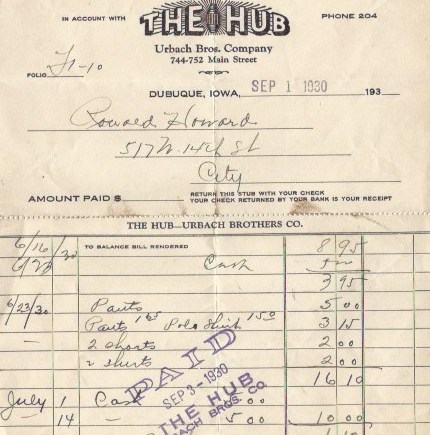 IN ACCOUNT WITH THE HUB PHONE 204
Urbach Bros. Company
744-752 Main Street
FOLIO F1-10
DUBUQUE, IOWA, SEP 1 1930 193
Howard
517 W. 14th St
City
AMOUNT PAID $
RETURN THIS STUB WITH YOUR CHECK
YOUR CHECK RETURNED BY YOUR BANK IS YOUR RECEIPT
THE HUB—URBACH BROTHERS CO.
6/16/30 TO BALANCE BILL RENDERED 8 95
6/23 Cash 5
3 95
6/23/30 Pants 5 00
Pants 1.65 Polo Shirt 1.50 3 15
— 2 shorts 2 00
2 shirts 2 00
16 10
PAID
SEP 3-1930
THE HUB
URBACH BROS. CO.
July 1 Cash 5 00
14 — 5 00 10 00